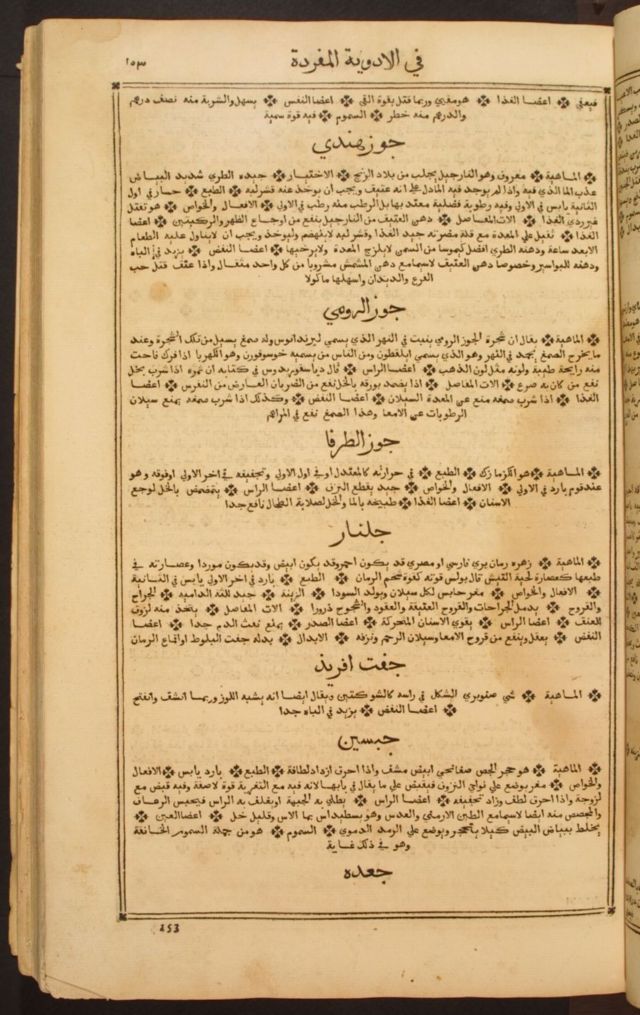 في الادوية المفردة
١٥٣
فيعفي ✤ اعضا الغذا ✤ هو مغثي وربما قتل بقوة القي ✤ اعضا النفس ✤ يسهل والشربة منه نصف درهم
والدرهم منه خطر ✤ السموم ✤ فيه قوة سمية
جوز هندي
✤ الماهية ✤ معروف وهو النارجيل يجلب من بلاد الزنج ✤ الاختيار ✤ جيده الطري شديد البياض
عذب الما الذي فيه واذا لم يوجد فيه الما دل علي انه عتيق ويجب ان يوخذ عنه قشر لبه ✤ الطبع ✤ حار في اول
الثانية يابس في الاولي وفيه رطوبة فضلية معتد بها بل الرطب منه رطب في الاولي ✤ الافعال والخواص ✤ هو ثقيل
غير ردي الغذا ✤ الات المفاصل ✤ دهن العتيق من النارجيل ينفع من اوجاع الظهر والركبتين ✤ اعضا
الغذا ✤ ثقيل علي المعدة مع قلة مضرته جيد الغذا وقشر لبه لا ينهضم وليوخذ ويجب ان لا يتناول عليه الطعام
الا بعد ساعة ودهنه الطري افضل كيموسا من السمن لا يلزج المعدة ولا يرخيها ✤ اعضا النفض ✤ يزيد في الباه
ودهنه للبواسير وخصوصا دهن العتيق لا سيما مع دهن المشمش مشروبا من كل واحد مثقال واذا عتق قتل حب
القرع والديدان واسهلها ماكولا
جوز الرومي
✤ الماهية ✤ يقال ان شجرة الجوز الرومي ينبت في النهر الذي يسمي ليريدانوس وله صمغ يسيل من تلك الشجرة وعند
ما يخرج الصمغ يجمد في النهر وهو الذي يسمي ايلقطون ومن الناس من يسميه خوسوفورون وهو الكهربا اذا فرك فاحت
منه رايحة طيبة ولونه مثل لون الذهب ✤ اعضا الراس ✤ قال دياسقوريدوس في كتابه ان ثمره اذا شرب بخل
نفع من كان به صرع ✤ الات المفاصل ✤ اذا يضمد بورقه بالخل نفع من الضربان العارض من النقرس ✤ اعضا
الغذا ✤ اذا شرب صمغه منع عن المعدة السيلان ✤ اعضا النفض ✤ وكذلك اذا شرب صمغه يمنع سيلان
الرطوبات عن الامعا وهذا الصمغ نفع في المراهم
جوز الطرفا
✤ الماهية ✤ هو الكزمازك ✤ الطبع ✤ في حرارته كالمعتدل او في اول الاولي وتجفيفه في اخر الاولي او فوقه وهو
عند قوم بارد في الاولي ✤ الافعال والخواص ✤ جيد يقطع النزف ✤ اعضا الراس ✤ يتمضمض بالخل لوجع
الاسنان ✤ اعضا الغذا ✤ طبيخه بالما والخل لصلابة الطحال نافع جدا
جلنار
✤ الماهية ✤ زهره رمان بري فارسي او مصري قد يكون احمر وقد يكون ابيض وقد يكون موردا وعصارته في
طبعها كعصارة لحية التيس قال بولس قوته كقوة شحم الرمان ✤ الطبع ✤ بارد في اخر الاولي يابس في الثانية
✤ الافعال والخواص ✤ مغر حابس لكل سيلان ويولد السودا ✤ الزينة ✤ جيد للثة الدامية ✤ الجراح
والقروح ✤ يدمل الجراحات والقروح العتيقة والعقود والشجوج ذرورا ✤ الات المفاصل ✤ يتخذ منه لزوق
للعتف ✤ اعضا الراس ✤ يقوي الاسنان المتحركة ✤ اعضا الصدر ✤ يمنع نفث الدم جدا ✤ اعضا
النفض ✤ يعقل وينفع من قروح الامعا وسيلان الرحم ونزفه ✤ الابدال ✤ بدله جفت البلوط او اقماع الرمان
جفت افريذ
✤ الماهية ✤ شي صنوبري الشكل في راسه كالشوكتين ويقال ايضا انه يشبه اللوز وربما انشف وانفتح
✤ اعضا النفض ✤ يزيد في الباه جدا
جبسين
✤ الماهية ✤ هو حجر الجص صفايحي ابيض مشف واذا احرق ازداد لطافة ✤ الطبع ✤ بارد يابس ✤ الافعال
والخواص ✤ مغر يوضع علي نواحي النزوف فيقبض علي ما يقال في بابها لانه فيه مع التغرية قوة لاصقة وفيه قبض مع
لزوجة واذا احرق لطف وزاد تجفيفه ✤ اعضا الراس ✤ يطلي به الجبهة او يغلف به الراس فيحبس الرعاف
والمجصص منه ايضا لا سيما مع الطين الارمني والعدس وهيوفسطيداس بما الاس وقليل خل ✤ اعضا العين ✤
يخلط ببياض البيض كيلا يتحجر ويوضع علي الرمد الدموي ✤ السموم ✤ هو من جملة السموم الخانقة
وهو في ذلك غاية
جعده
253